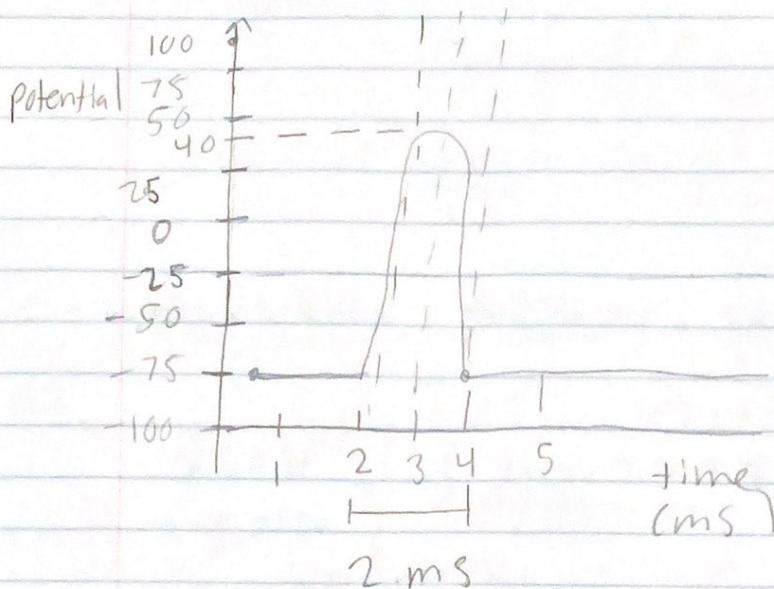 100
potential 75
50
40
25
0
-25
-50
-75
-100
1 2 3 4 5 time
(ms)
2 ms